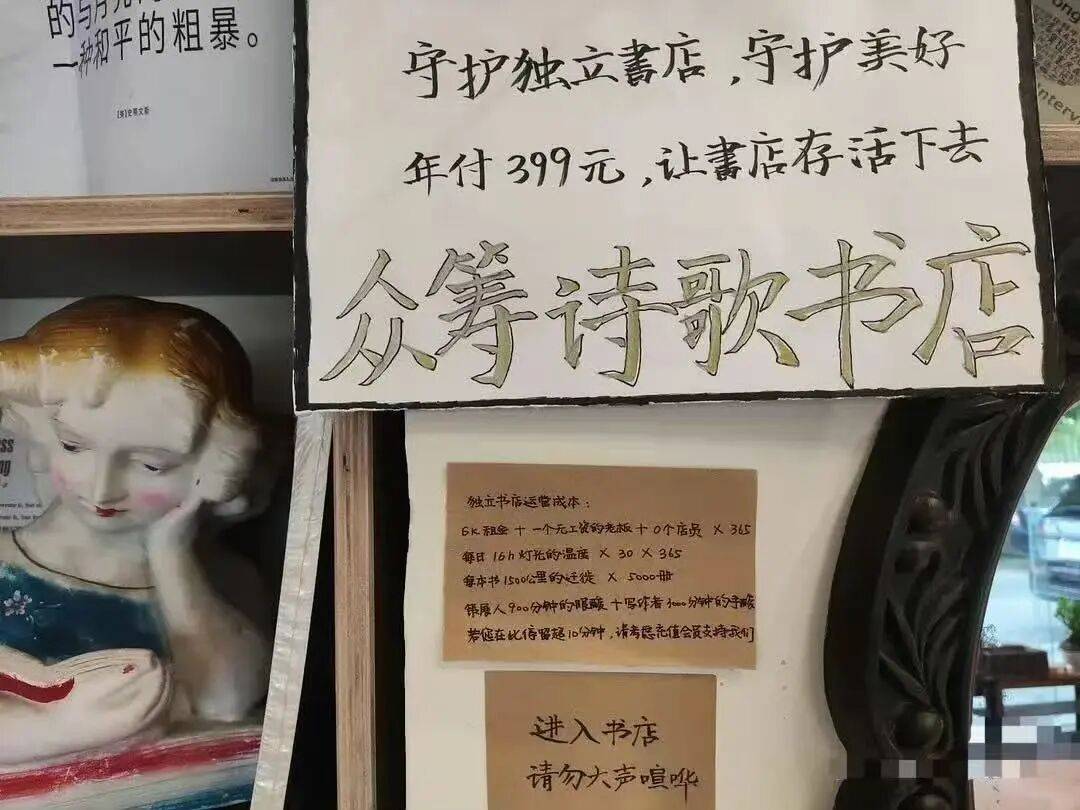 的与月光
一种和平的粗暴。
[美]史蒂文斯
守护独立書店，守护美好
年付399元，让書店存活下去
众筹诗歌书店
独立书店运营成本：
6K租金＋一个无工资的老板＋0个店员 × 365
每日16h灯光的温度 × 30 × 365
每本书1500公里的迁徙 × 5000册
策展人900分钟的眼酸＋写作者1000分钟的手酸
若您在此停留超10分钟，请考虑充值会员支持我们
进入书店
请勿大声喧哗